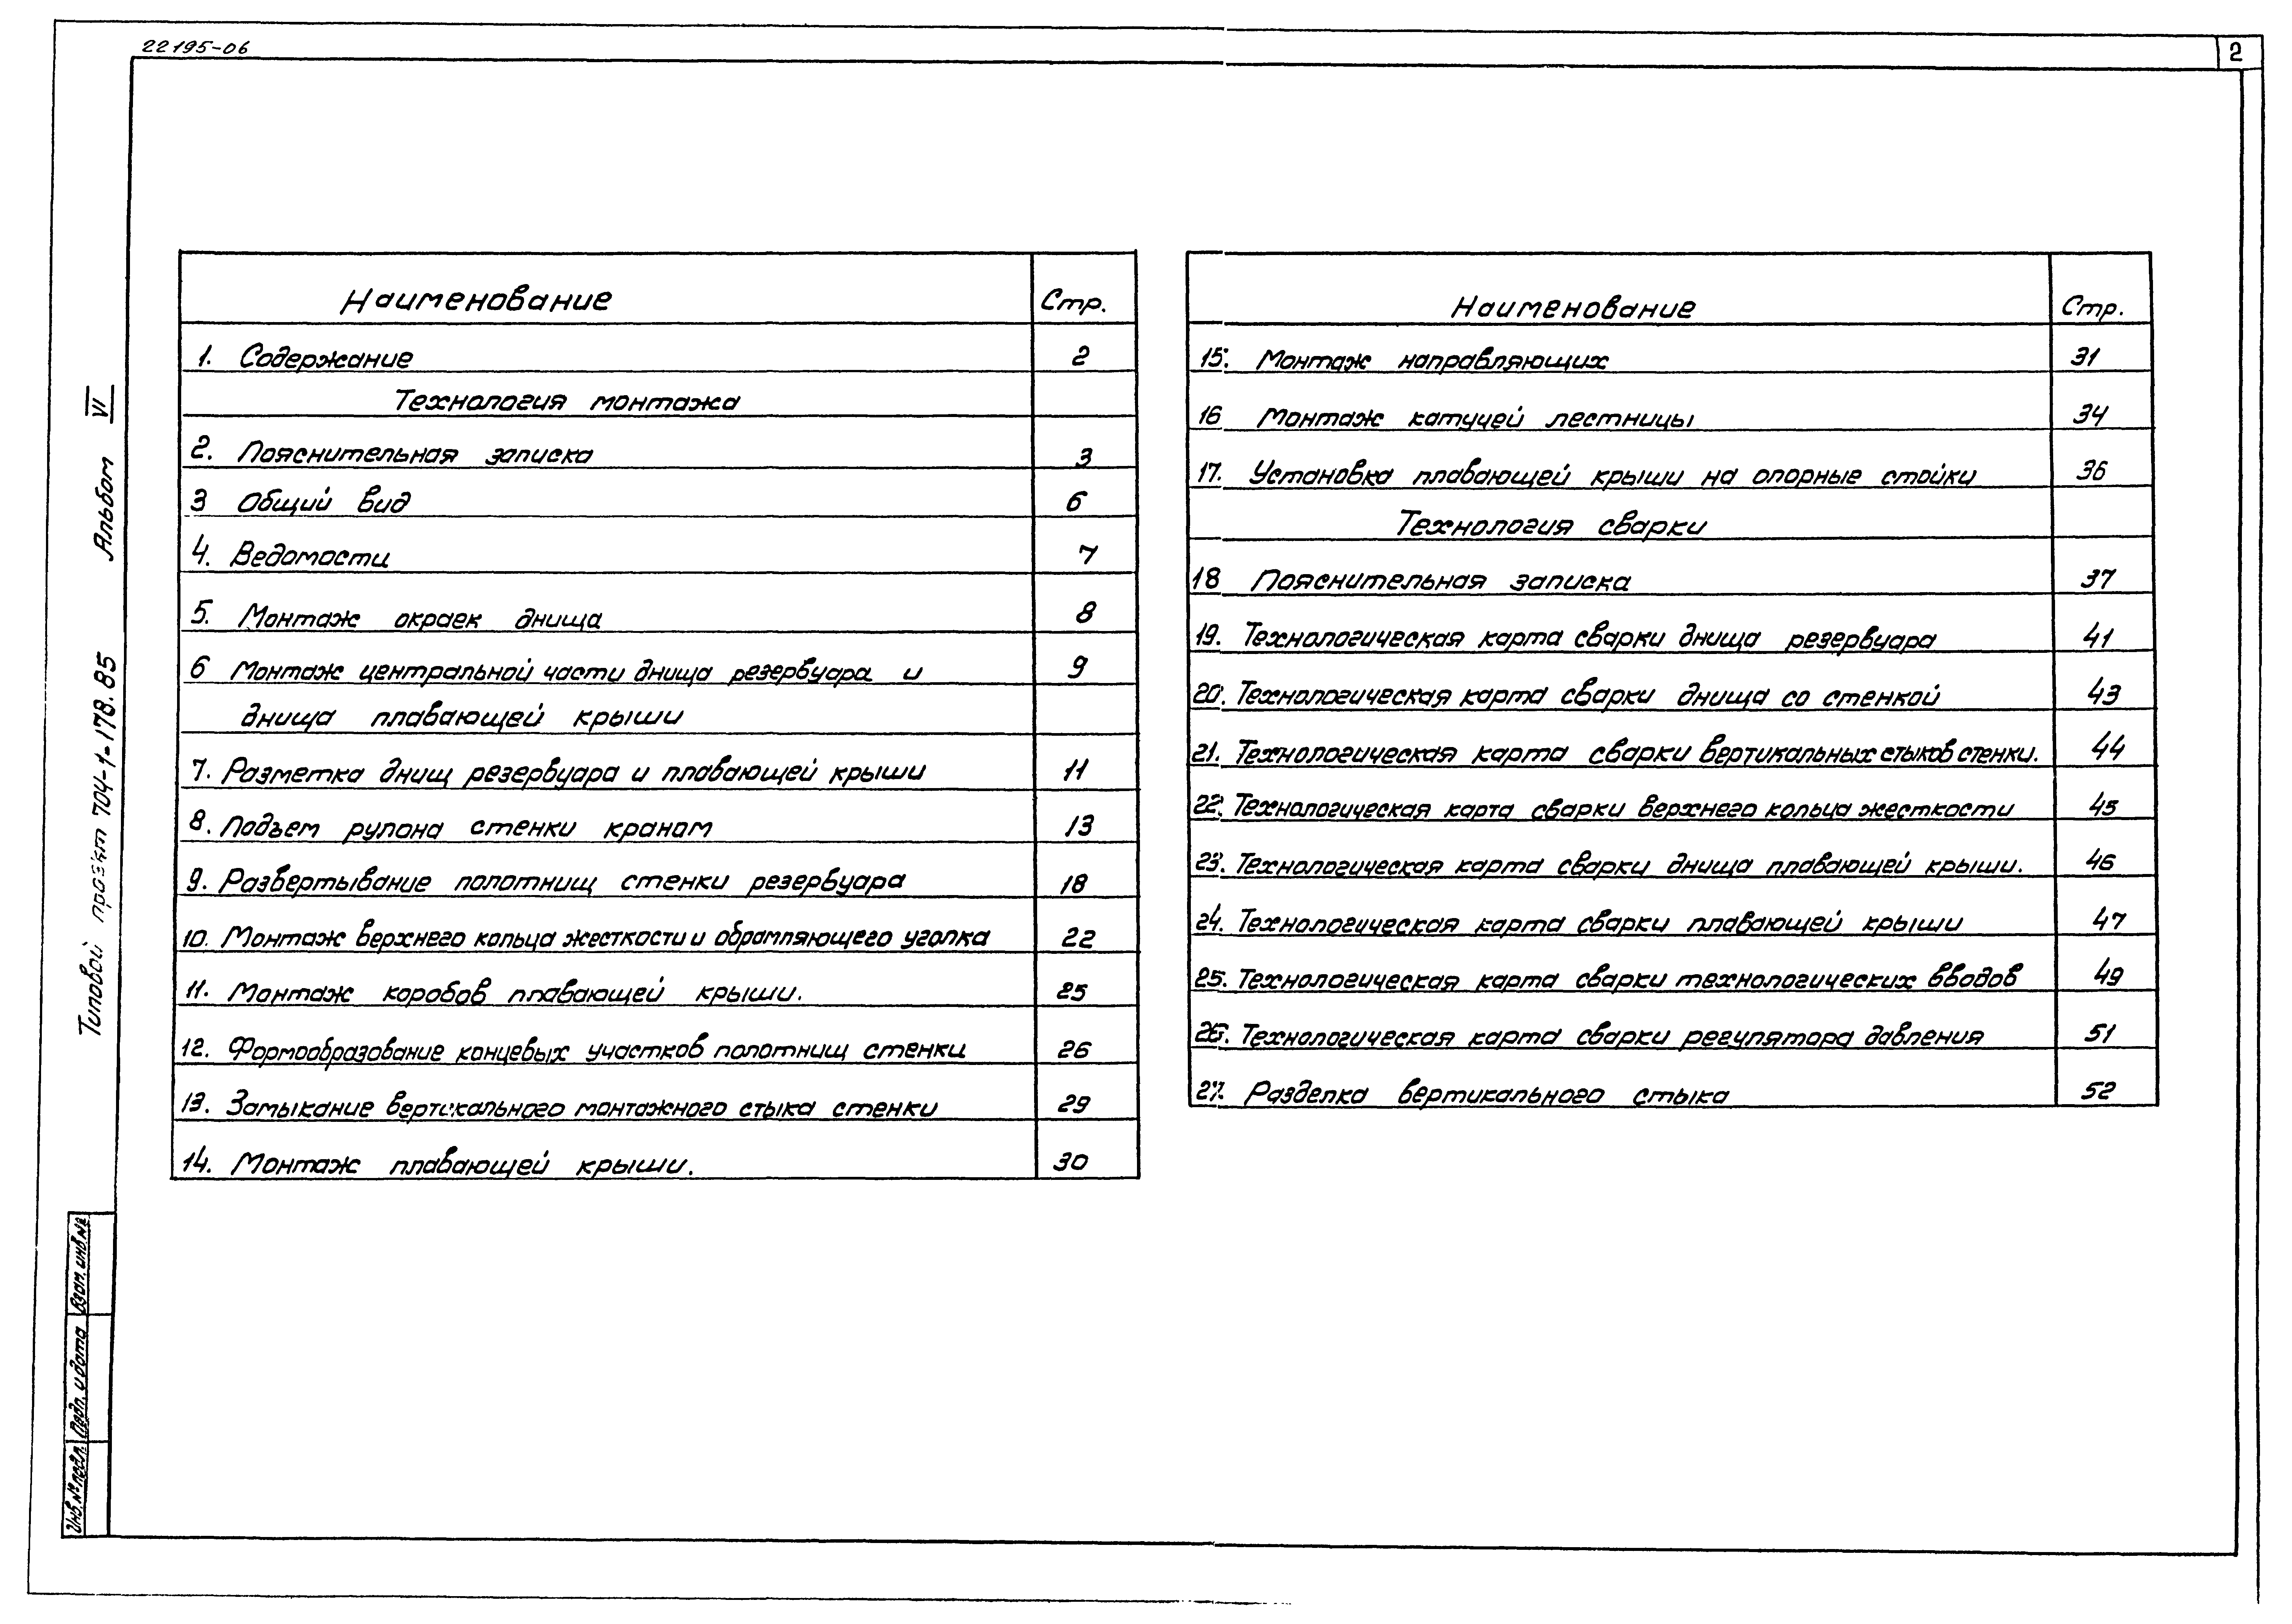 22195-06
2
Наименование Стр.
1. Содержание 2
Технология монтажа
2. Пояснительная записка 3
3 Общий вид 6
4. Ведомости 7
5. Монтаж окраек днища 8
6 Монтаж центральной части днища резервуара и 9
днища плавающей крыши
7. Разметка днищ резервуара и плавающей крыши 11
8. Подъем рулона стенки краном 13
9. Развертывание полотнищ стенки резервуара 18
10. Монтаж верхнего кольца жесткости и обрамляющего уголка 22
11. Монтаж коробов плавающей крыши. 25
12. Формообразование концевых участков полотнищ стенки 26
13. Замыкание вертикального монтажного стыка стенки 29
14. Монтаж плавающей крыши. 30
Наименование Стр.
15. Монтаж направляющих 31
16 Монтаж катучей лестницы 34
17. Установка плавающей крыши на опорные стойки 36
Технология сварки
18 Пояснительная записка 37
19. Технологическая карта сварки днища резервуара 41
20. Технологическая карта сварки днища со стенкой 43
21. Технологическая карта сварки вертикальных стыков стенки. 44
22. Технологическая карта сварки верхнего кольца жесткости 45
23. Технологическая карта сварки днища плавающей крыши. 46
24. Технологическая карта сварки плавающей крыши 47
25. Технологическая карта сварки технологических вводов 49
26. Технологическая карта сварки регулятора давления 51
27. Разделка вертикального стыка 52
Типовой проект 704-1-178.85 Альбом VI
Взам. инв. №
Подп. и дата
Инв. № подл.